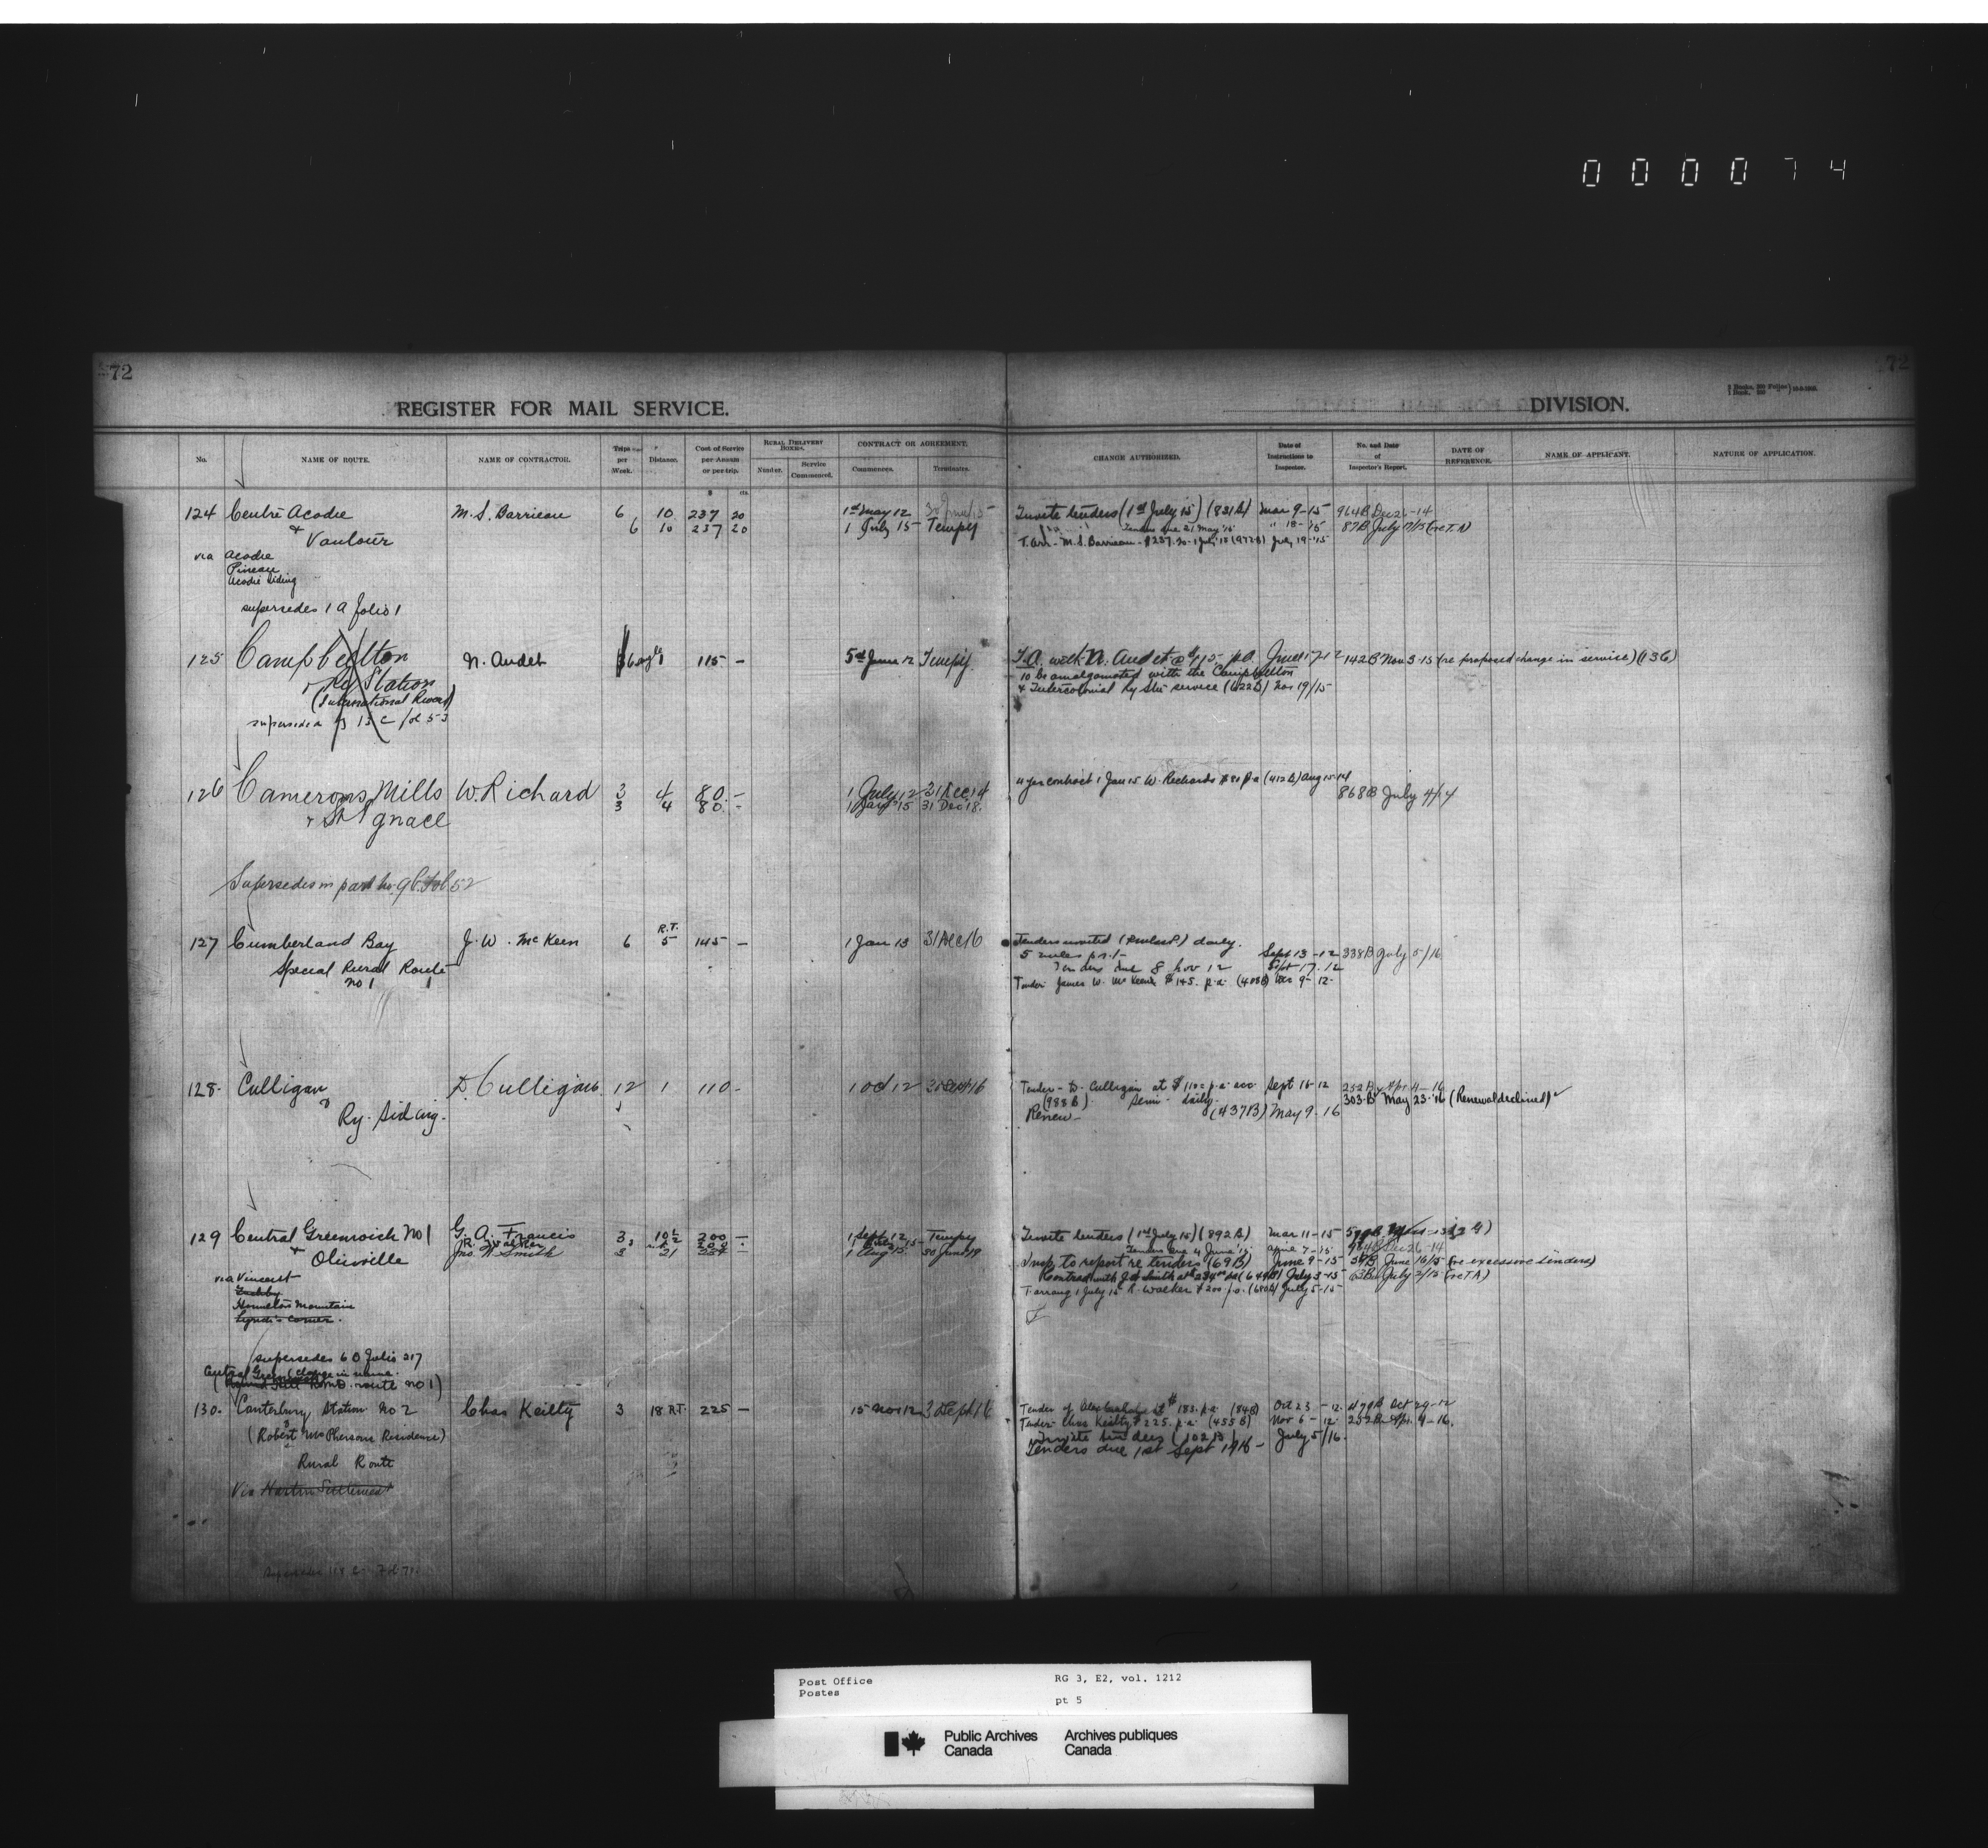 000074
72
72
REGISTER FOR MAIL SERVICE.
DIVISION.
No.
NAME OF ROUTE.
NAME OF CONTRACTOR.
Trips per Week.
Distance.
Cost of Service per Annum or per trip.
RURAL DELIVERY BOXES.
Number.
Service Commenced.
CONTRACT OR AGREEMENT.
Commences.
Terminates.
CHANGE AUTHORIZED.
Date of Instructions to Inspector.
No. and Date of Inspector's Report.
DATE OF REFERENCE.
NAME OF APPLICANT.
NATURE OF APPLICATION.
$ cts.
124 Centre Acadie M. S. Barrieau 6 10 237 20 1st May 12 30 June 15 Invite tenders (1st July 15) (831B) Mar 9-15 964B Dec 26-14
& Vautour 6 10 237 20 1 July 15 Tempy Tenders due 21 May '15 " 18-15 87B July
T. Arr - M. S. Barrieau - $237.20 - 1 July 15 (972B) July 19-15
via Acadie
Pineau
Acadie Siding
supersedes 1 A folio 1
125 Campbellton N. Audet 115 - Tempy. T.A. with N. Audet @ $115- p.a. June 17-12 142B Nov 3-15 (re proposed change in service) (136)
& Ry Station to be amalgamated with the Campbellton
(International Railway) & Intercolonial Ry Stn service (622B) Nov 19/15
superseded by 13 C fol 53
126 Camerons Mills W. Richard 3 4 80 - 1 July 12 31 Dec 14 4 yr contract 1 Jan 15 W. Richards $80 p a (412B) Aug 15-14
& St Ignace 3 4 80 - 1 Jany 15 31 Dec 18. 868B July 4/14
Supersedes in part no 96 fol 52
127 Cumberland Bay J. W. McKeen 6 R.T. 5 145 - 1 Jan 13 31 Dec 16 Tenders invited daily. Sept 13-12 338B July 5/16
Special Rural Route 5 miles
No 1 Tenders due 8 Nov 12 Sept 17.12
Tender James W. McKeen $145. p.a. (408B) Dec 9-12.
128. Culligan D. Culligan 12 1 110 - 1 Oct 12 30 Sept 16 Tender - D. Culligan at $110 p.a. Sept 16-12 252B Apr 4-16
& Ry. Siding. (988B) Semi-daily. 303-B May 23-'16 (Renewal declined)
Renew - (437B) May 9-16
129 Central Greenwich No 1 G. A. Francis 3 10½ 200 - 1 Sept 12 Tempy Invite tenders (1st July 15) (892B) Mar 11-15
& Olinville R. Walker 200 - Tenders due 4 June '15 April 7-15 964B Dec 26-14
Jno. W. Smith 3 21 234 1 Aug 15 30 June 19 Insp to report re tenders (69B) June 9-15 39B June 16/15 (re excessive tenders)
via Vincent Contract with J W Smith at $234 pa (649B) July 3-15 63B July 2/15 (re T A)
T arrang 1 July 15 R. Walker $200 p.a. (680B) July 5-15
Hamilton Mountain
Lynds Corner.
supersedes 60 folio 217
Central Greenwich (change in name.
route No 1)
130. Canterbury Station No 2 Chas Keilty 3 18 R.T. 225 - 15 Nov 12 30 Sept 16 Tender of at $183. p.a. (84B) Oct 23-12. 479B Oct 29-12
(Robert McPhersons Residence) Tender Chas Keilty $225. p.a. (455B) Nov 6-12 252B Apr. 4-16.
Invite tenders (102B) July 5/16.
Rural Route Tenders due 1st Sept 1916 -
Via Hartin Settlement
Supersedes 118 C Fol 71.
Post Office
Postes
RG 3, E2, vol. 1212
pt 5
Public Archives
Canada
Archives publiques
Canada